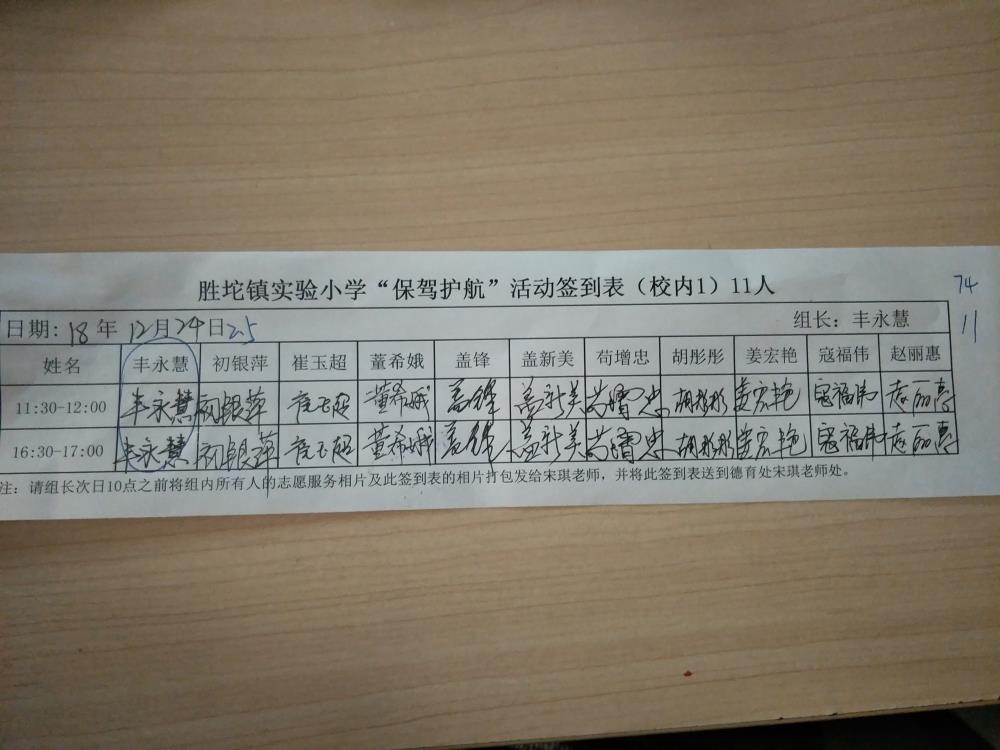 胜坨镇实验小学“保驾护航”活动签到表（校内1）11人
74
11
日期: 18 年 12月24日 2.5 组长：丰永慧
姓名 丰永慧 初银萍 崔玉超 董希娥 盖锋 盖新美 苟增忠 胡彤彤 姜宏艳 寇福伟 赵丽惠
11:30-12:00 丰永慧 初银萍 崔玉超 董希娥 盖锋 盖新美 苟增忠 胡彤彤 姜宏艳 寇福伟 赵丽惠
16:30-17:00 丰永慧 初银萍 崔玉超 董希娥 盖锋 盖新美 苟增忠 胡彤彤 姜宏艳 寇福伟 赵丽惠
注：请组长次日10点之前将组内所有人的志愿服务相片及此签到表的相片打包发给宋琪老师，并将此签到表送到德育处宋琪老师处。